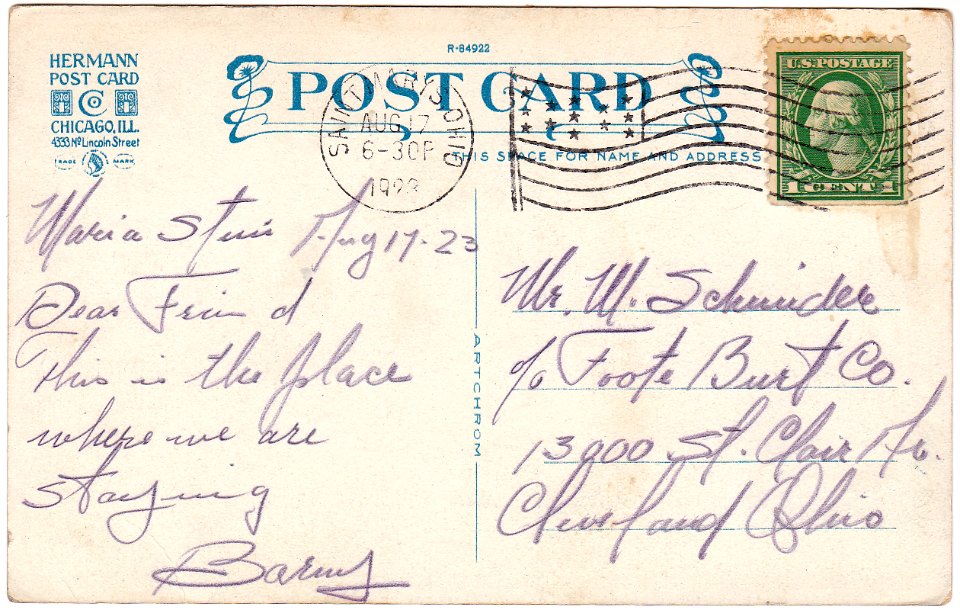 R-84922
HERMANN
POST CARD
CHICAGO, ILL.
4333 No Lincoln Street
TRADE MARK
POST CARD
THIS SPACE FOR NAME AND ADDRESS
SAINT MARYS OHIO
AUG 17
6-30P
1923
U.S. POSTAGE
1 CENT 1
Maria Stein Aug 17-23
Dear Friend
This is the place
where we are
staying
Barny
ARTCHROM
Mr. M. Schnider
c/o Foote Burt Co.
13000 St. Clair Av.
Cleveland Ohio